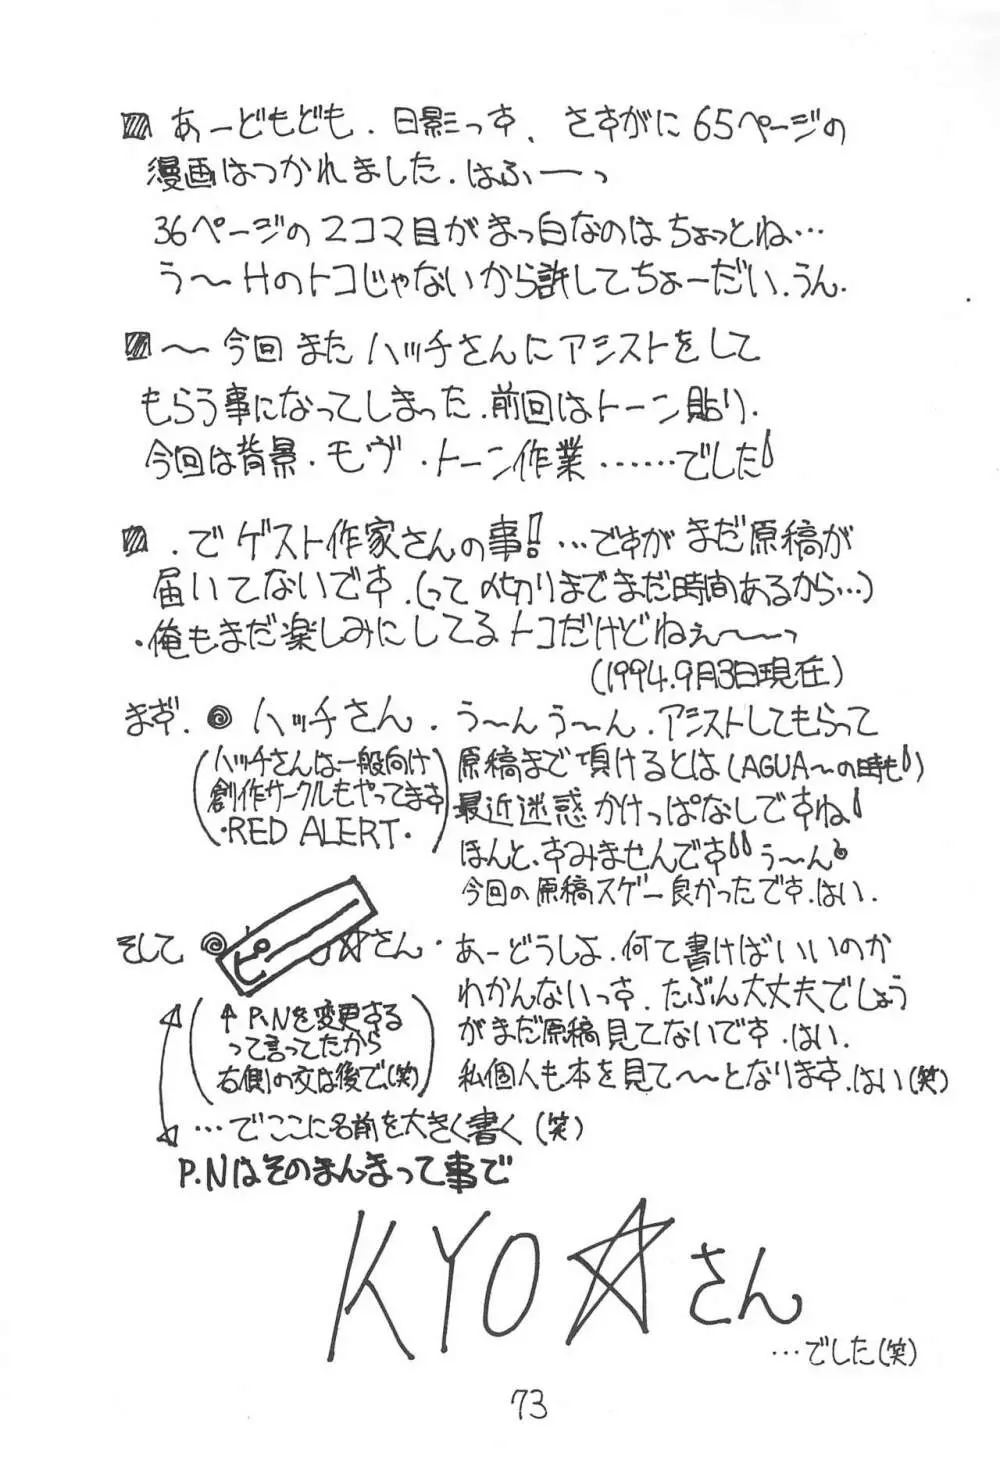 あーどもども、日影っす、さすがに65ページの
漫画はつかれました.はふーーっ
36ページの2コマ目がまっ白なのはちょっとね…
う〜Hのトコじゃないから許してちょーだい.うん.
〜今回またハッチさんにアシストをして
もらう事になってしまった.前回はトーン貼り.
今回は背景・モヴ・トーン作業……でした!
.でゲスト作家さんの事!…ですがまだ原稿が
届いてないです.(って〆切りまでまだ時間あるから…)
・俺もまだ楽しみにしてるトコだけどねぇ〜〜っ
(1994.9月3日現在)
まず.◎ハッチさん.う〜んう〜ん.アシストしてもらって
原稿まで頂けるとは(AGUA〜の時も!)
最近迷惑かけっぱなしですね!
ほんと、すみませんです!!う〜ん
今回の原稿スゲー良かったです.はい.
(ハッチさんは一般向け
創作サークルもやってます
・RED ALERT・)
そして ◎ ピー ☆さん・あーどうしよ.何て書けばいいのか
わかんないっす.たぶん大丈夫でしょう
がまだ原稿見てないです.はい.
私個人も本を見て〜〜となります.はい(笑)
(↑P.Nを変更する
って言ってたから
右側の文は後で(笑))
…でここに名前を大きく書く(笑)
P.Nはそのまんまって事で
KYO☆さん
…でした(笑)
73